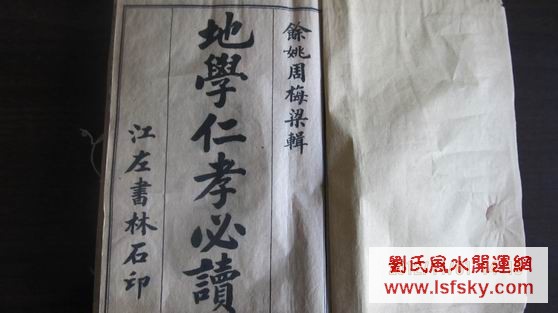 餘姚周梅梁輯
地學仁孝必讀
江左書林石印
劉氏風水開運網
www.lsfsky.com